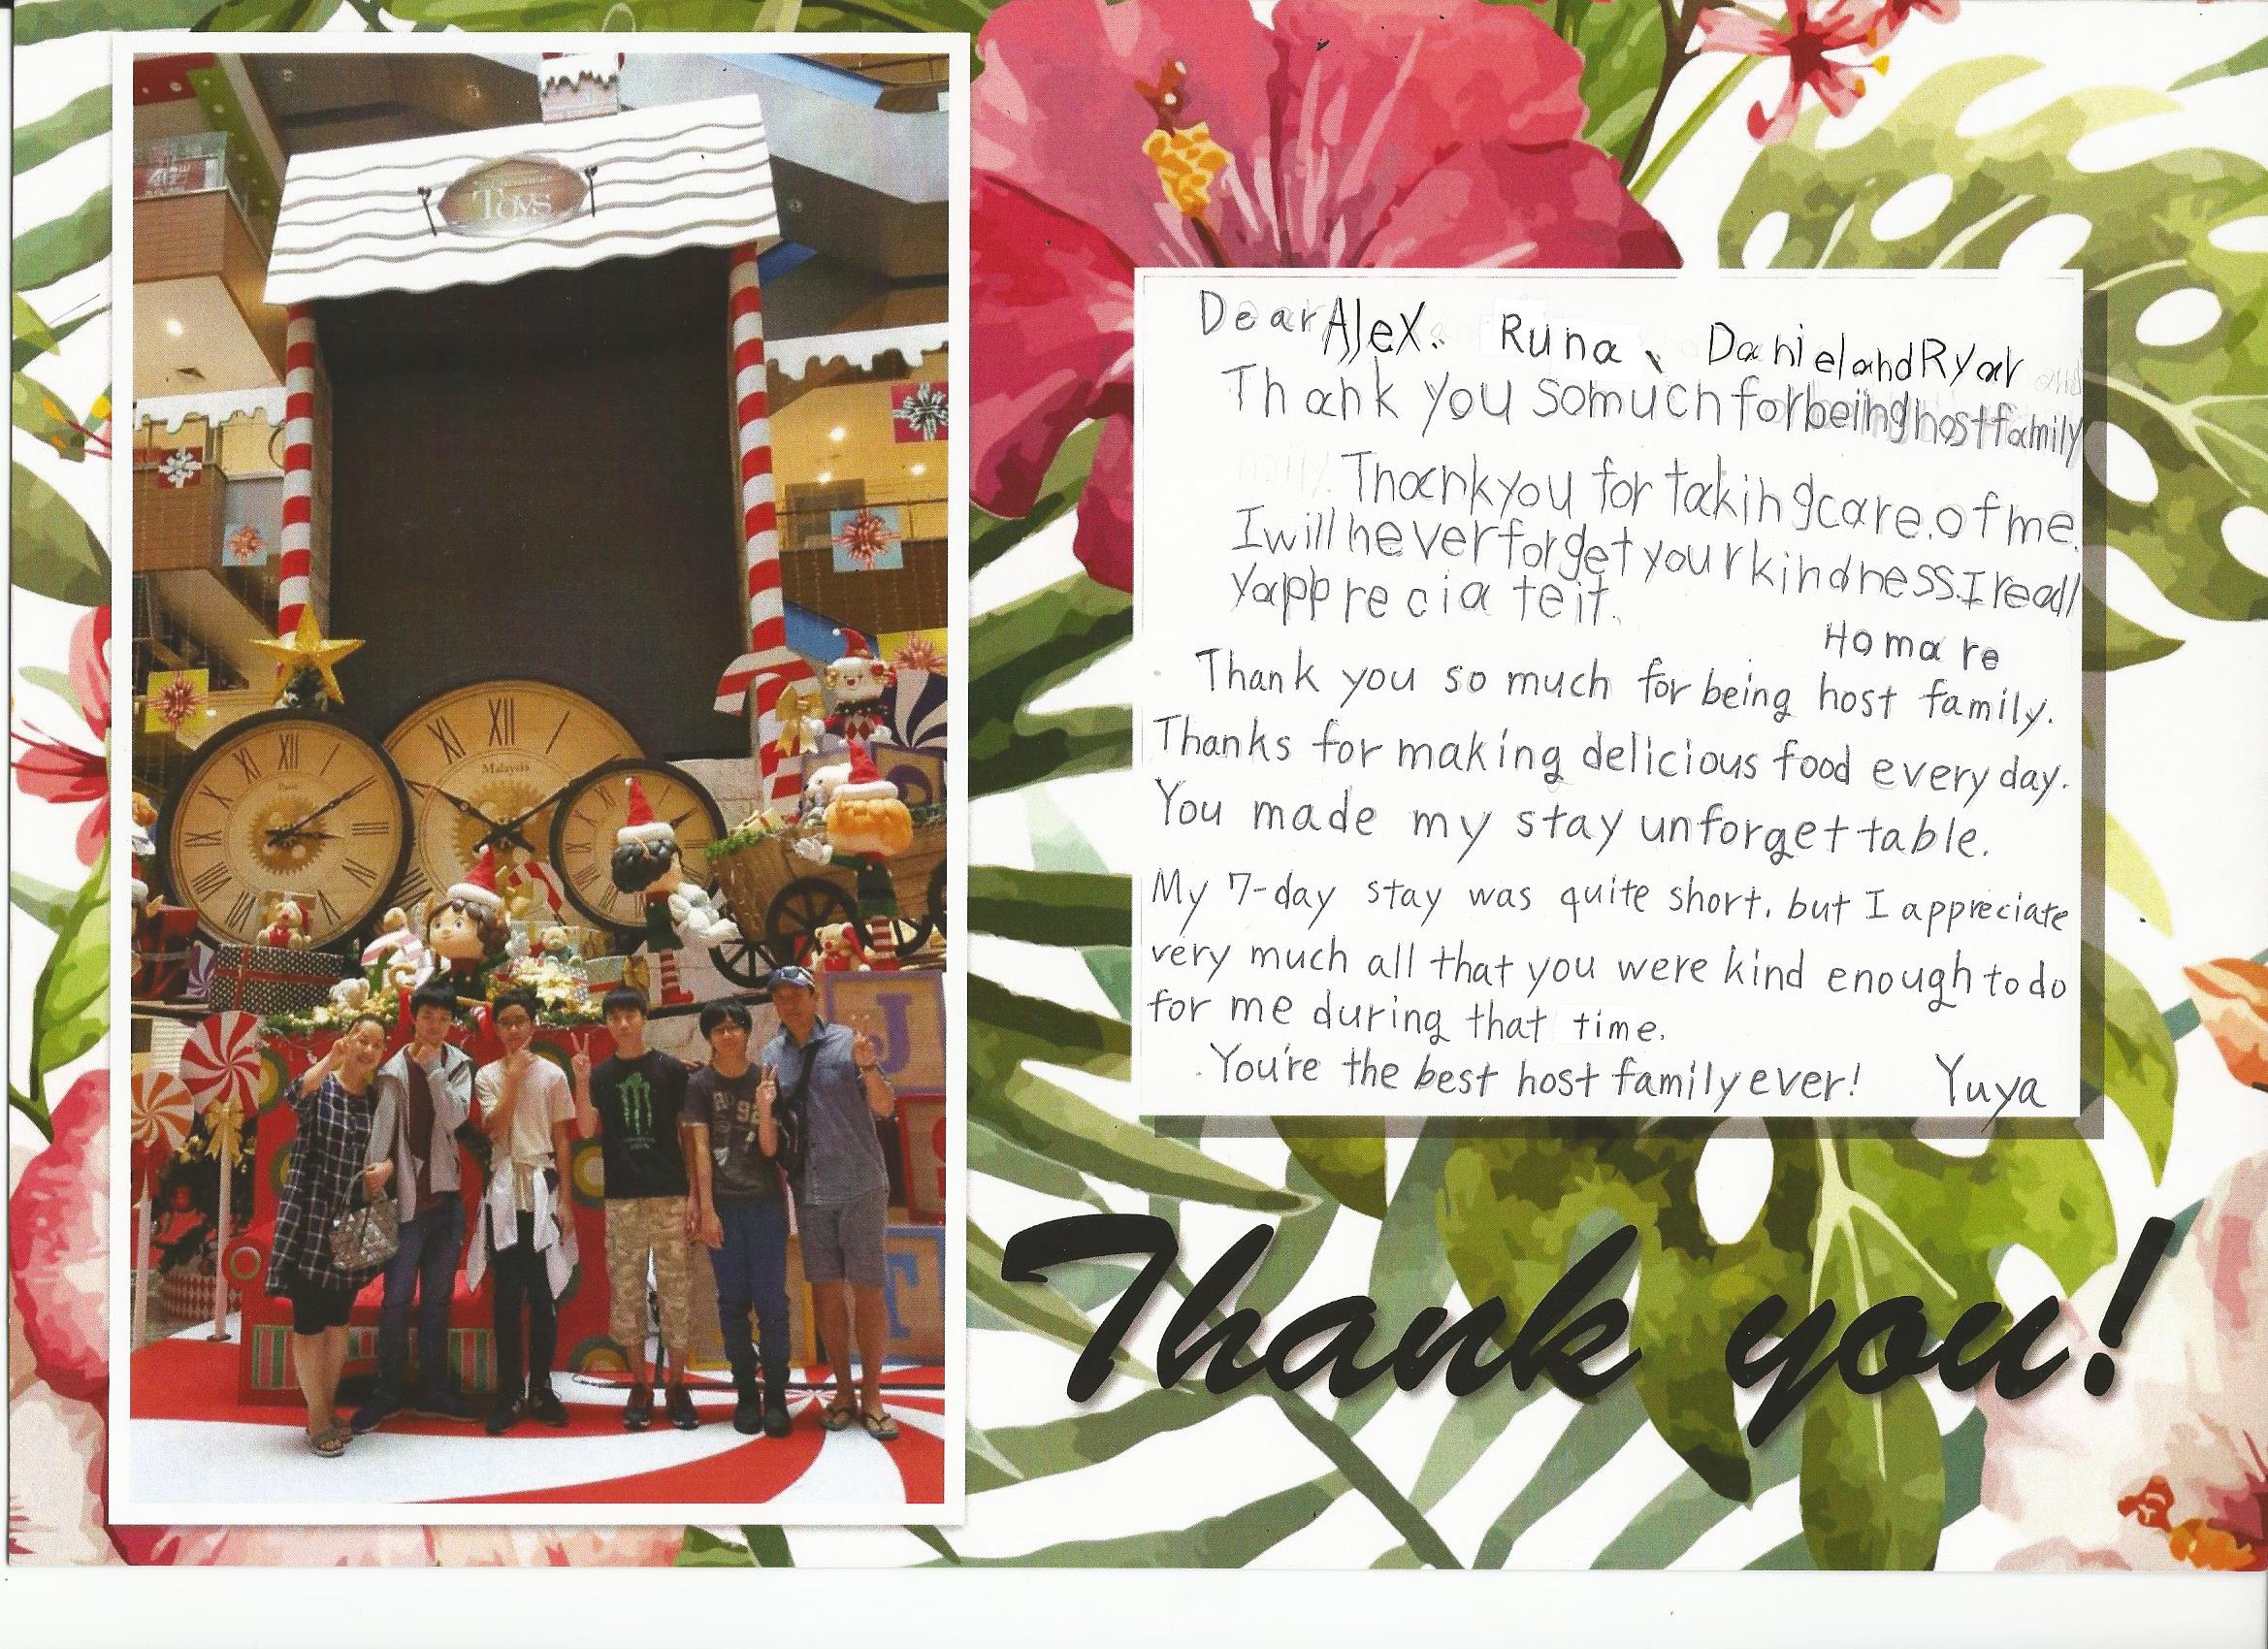 TOYS
XI XII I
Malaysia
XI XII I
Paris
J
F
Dear Alex. Runa、 Daniel and Ryan
Thank you so much for being host family
Thank you for taking care. of me.
I will never forget your kindness. I reall
y appreciate it.
Homare
Thank you so much for being host family.
Thanks for making delicious food every day.
You made my stay unforgettable.
My 7-day stay was quite short. but I appreciate
very much all that you were kind enough to do
for me during that time.
You're the best host family ever! Yuya
Thank you!